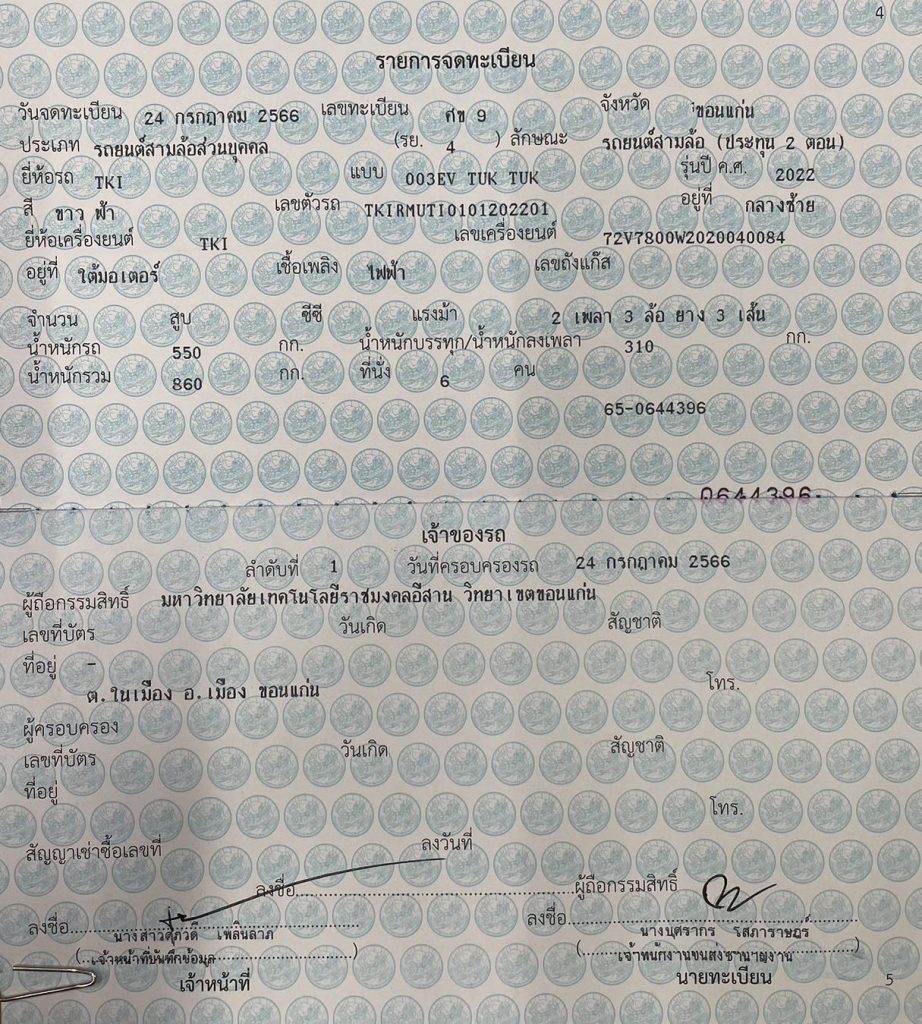 4
รายการจดทะเบียน
วันจดทะเบียน 24 กรกฎาคม 2566 เลขทะเบียน ศข 9 จังหวัด ขอนแก่น
ประเภท รถยนต์สามล้อส่วนบุคคล (รย. 4 ) ลักษณะ รถยนต์สามล้อ (ประทุน 2 ตอน)
ยี่ห้อรถ TKI แบบ 003EV TUK TUK รุ่นปี ค.ศ. 2022
สี ขาว ฟ้า เลขตัวรถ TKIRMUTI0101202201 อยู่ที่ กลางซ้าย
ยี่ห้อเครื่องยนต์ TKI เลขเครื่องยนต์ 72V7800W2020040084
อยู่ที่ ใต้มอเตอร์ เชื้อเพลิง ไฟฟ้า เลขถังแก๊ส
จำนวน สูบ ซีซี แรงม้า 2 เพลา 3 ล้อ ยาง 3 เส้น
น้ำหนักรถ 550 กก. น้ำหนักบรรทุก/น้ำหนักลงเพลา 310 กก.
น้ำหนักรวม 860 กก. ที่นั่ง 6 คน
65-0644396
0644396
เจ้าของรถ
ลำดับที่ 1 วันที่ครอบครองรถ 24 กรกฎาคม 2566
ผู้ถือกรรมสิทธิ์ มหาวิทยาลัยเทคโนโลยีราชมงคลอีสาน วิทยาเขตขอนแก่น
เลขที่บัตร วันเกิด สัญชาติ
ที่อยู่ -
ต.ในเมือง อ.เมือง ขอนแก่น โทร.
ผู้ครอบครอง
เลขที่บัตร วันเกิด สัญชาติ
ที่อยู่
โทร.
สัญญาเช่าซื้อเลขที่ ลงวันที่
ลงชื่อ ผู้ถือกรรมสิทธิ์
ลงชื่อ ลงชื่อ
นางสาวศุภวดี เพลินลาภ นางบุศรากร โสภาราษฎร์
(เจ้าหน้าที่บันทึกข้อมูล) (เจ้าพนักงานขนส่งชำนาญงาน)
เจ้าหน้าที่ นายทะเบียน
5